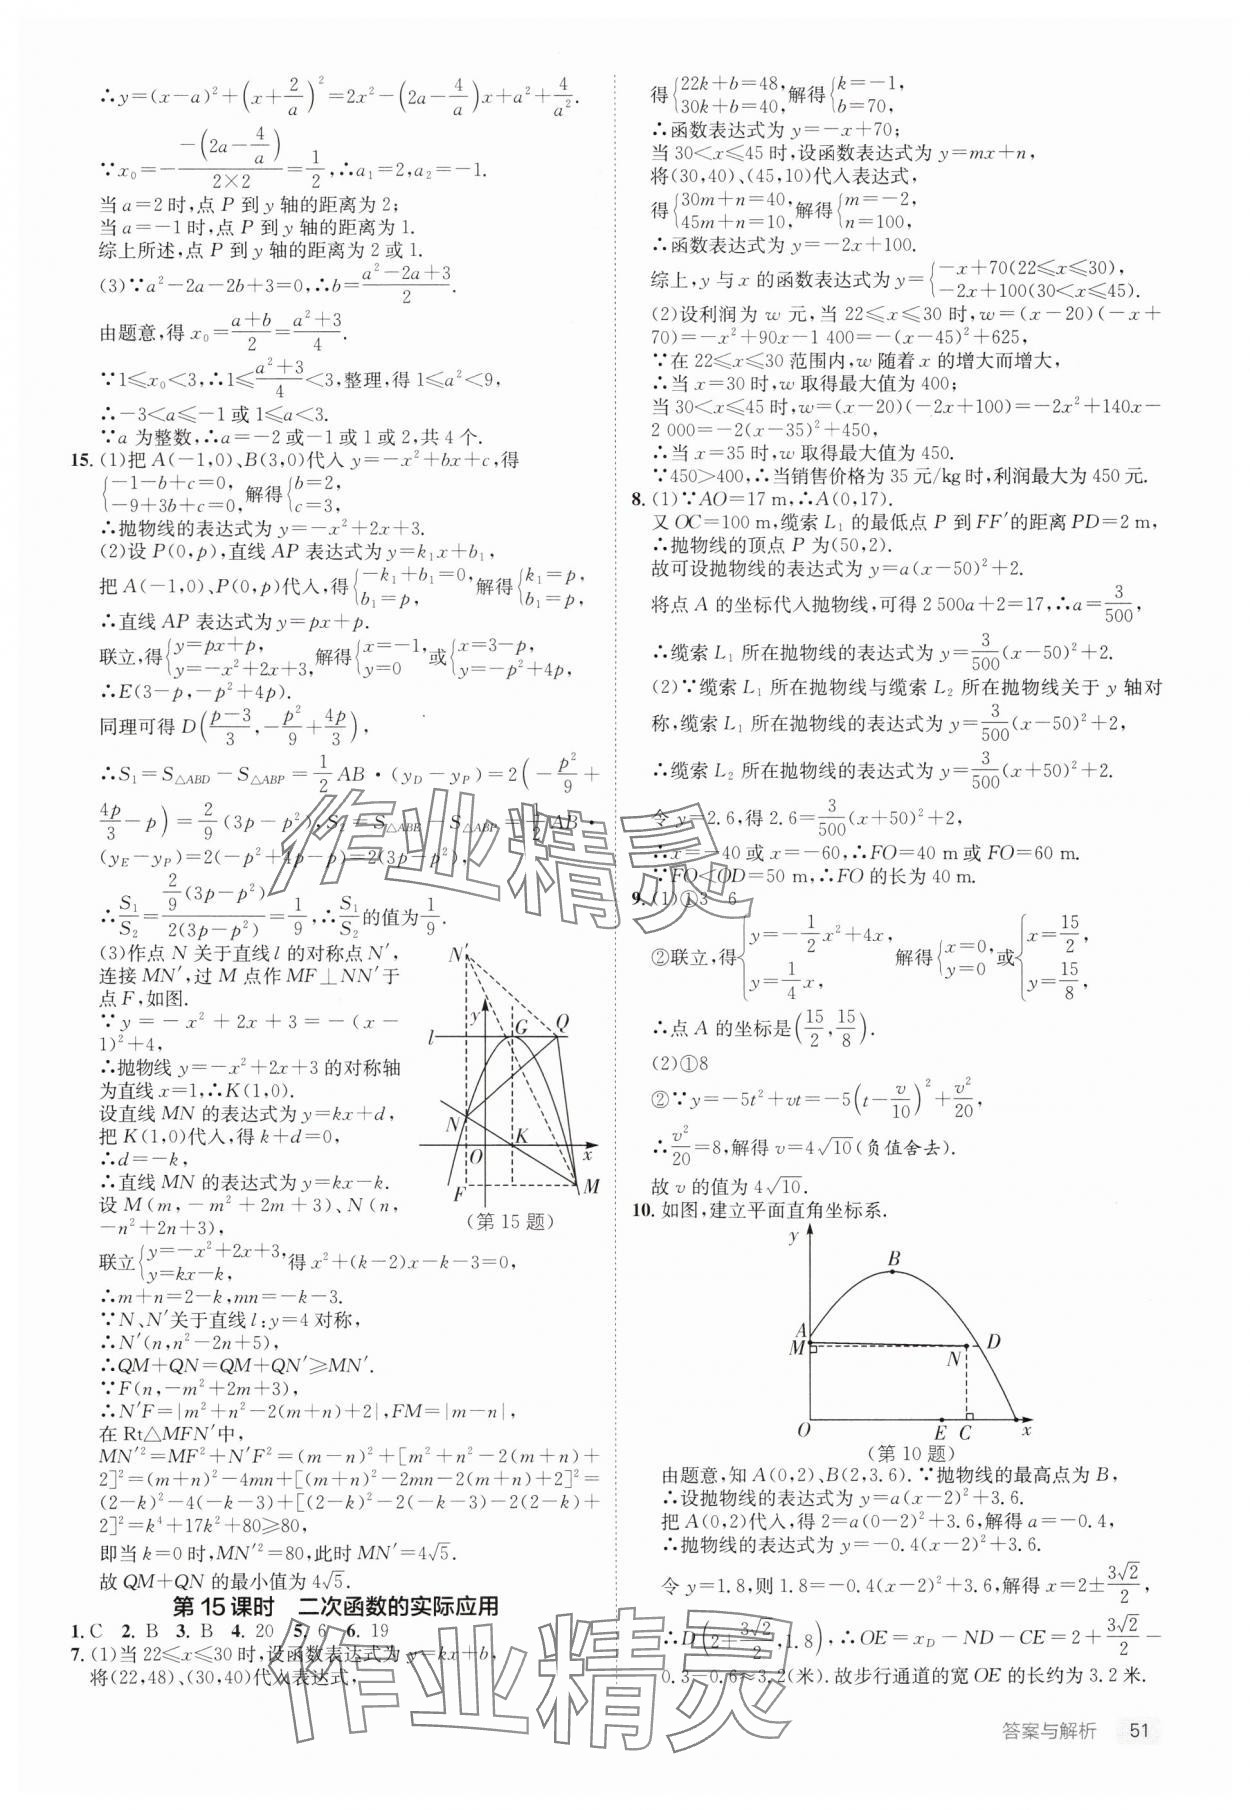 ∴y=(x-a)²+(x+2/a)²=2x²-(2a-4/a)x+a²+4/a².
∵x₀=-[-(2a-4/a)]/(2×2)=1/2,∴a₁=2,a₂=-1.
当a=2时,点P到y轴的距离为2;
当a=-1时,点P到y轴的距离为1.
综上所述,点P到y轴的距离为2或1.
(3)∵a²-2a-2b+3=0,∴b=(a²-2a+3)/2.
由题意,得x₀=(a+b)/2=(a²+3)/4.
∵1≤x₀<3,∴1≤(a²+3)/4<3,整理,得1≤a²<9,
∴-3<a≤-1或1≤a<3.
∵a为整数,∴a=-2或-1或1或2,共4个.
15. (1)把A(-1,0)、B(3,0)代入y=-x²+bx+c,得
{-1-b+c=0, -9+3b+c=0, 解得{b=2, c=3,
∴抛物线的表达式为y=-x²+2x+3.
(2)设P(0,p),直线AP表达式为y=k₁x+b₁,
把A(-1,0)、P(0,p)代入,得{-k₁+b₁=0, b₁=p, 解得{k₁=p, b₁=p,
∴直线AP表达式为y=px+p.
联立,得{y=px+p, y=-x²+2x+3, 解得{x=-1, y=0 或{x=3-p, y=-p²+4p,
∴E(3-p,-p²+4p).
同理可得D((p-3)/3,-p²/9+4p/3),
∴S₁=S△ABD-S△ABP=1/2 AB·(y_D-y_P)=2(-p²/9+
4p/3-p)=2/9(3p-p²),S₂=S△ABE-S△ABP=1/2 AB·
(y_E-y_P)=2(-p²+4p-p)=2(3p-p²),
∴S₁/S₂=[2/9(3p-p²)]/[2(3p-p²)]=1/9,∴S₁/S₂的值为1/9.
(3)作点N关于直线l的对称点N′,
连接MN′,过M点作MF⊥NN′于
点F,如图.
∵y=-x²+2x+3=-(x-
1)²+4,
∴抛物线y=-x²+2x+3的对称轴
为直线x=1,∴K(1,0).
设直线MN的表达式为y=kx+d,
把K(1,0)代入,得k+d=0,
∴d=-k,
∴直线MN的表达式为y=kx-k.
设M(m,-m²+2m+3)、N(n,
-n²+2n+3),
N′
y
l
G
Q
N
K
O
x
F
M
(第15题)
联立{y=-x²+2x+3, y=kx-k, 得x²+(k-2)x-k-3=0,
∴m+n=2-k,mn=-k-3.
∵N、N′关于直线l:y=4对称,
∴N′(n,n²-2n+5),
∴QM+QN=QM+QN′≥MN′.
∵F(n,-m²+2m+3),
∴N′F=|m²+n²-2(m+n)+2|,FM=|m-n|,
在Rt△MFN′中,
MN′²=MF²+N′F²=(m-n)²+[m²+n²-2(m+n)+
2]²=(m+n)²-4mn+[(m+n)²-2mn-2(m+n)+2]²=
(2-k)²-4(-k-3)+[(2-k)²-2(-k-3)-2(2-k)+
2]²=k⁴+17k²+80≥80,
即当k=0时,MN′²=80,此时MN′=4√5.
故QM+QN的最小值为4√5.
第15课时 二次函数的实际应用
1.C 2.B 3.B 4.20 5.6 6.19
7. (1)当22≤x≤30时,设函数表达式为y=kx+b,
将(22,48)、(30,40)代入表达式,
得{22k+b=48, 30k+b=40, 解得{k=-1, b=70,
∴函数表达式为y=-x+70;
当30<x≤45时,设函数表达式为y=mx+n,
将(30,40)、(45,10)代入表达式,
得{30m+n=40, 45m+n=10, 解得{m=-2, n=100,
∴函数表达式为y=-2x+100.
综上,y与x的函数表达式为y={-x+70(22≤x≤30), -2x+100(30<x≤45).
(2)设利润为w元,当22≤x≤30时,w=(x-20)(-x+
70)=-x²+90x-1 400=-(x-45)²+625,
∵在22≤x≤30范围内,w随着x的增大而增大,
∴当x=30时,w取得最大值为400;
当30<x≤45时,w=(x-20)(-2x+100)=-2x²+140x-
2 000=-2(x-35)²+450,
∴当x=35时,w取得最大值为450.
∵450>400,∴当销售价格为35元/kg时,利润最大为450元.
8. (1)∵AO=17 m,∴A(0,17).
又OC=100 m,缆索L₁的最低点P到FF′的距离PD=2 m,
∴抛物线的顶点P为(50,2).
故可设抛物线的表达式为y=a(x-50)²+2.
将点A的坐标代入抛物线,可得2 500a+2=17,∴a=3/500,
∴缆索L₁所在抛物线的表达式为y=3/500(x-50)²+2.
(2)∵缆索L₁所在抛物线与缆索L₂所在抛物线关于y轴对
称,缆索L₁所在抛物线的表达式为y=3/500(x-50)²+2,
∴缆索L₂所在抛物线的表达式为y=3/500(x+50)²+2.
令y=2.6,得2.6=3/500(x+50)²+2,
∴x=-40或x=-60,∴FO=40 m或FO=60 m.
∵FO<OD=50 m,∴FO的长为40 m.
9. (1)①3 6
②联立,得{y=-1/2x²+4x, y=1/4x, 解得{x=0, y=0 或{x=15/2, y=15/8,
∴点A的坐标是(15/2,15/8).
(2)①8
②∵y=-5t²+vt=-5(t-v/10)²+v²/20,
∴v²/20=8,解得v=4√10(负值舍去).
故v的值为4√10.
10. 如图,建立平面直角坐标系.
y
B
A
M
N
D
O
E
C
x
(第10题)
由题意,知A(0,2)、B(2,3.6).∵抛物线的最高点为B,
∴设抛物线的表达式为y=a(x-2)²+3.6.
把A(0,2)代入,得2=a(0-2)²+3.6,解得a=-0.4,
∴抛物线的表达式为y=-0.4(x-2)²+3.6.
令y=1.8,则1.8=-0.4(x-2)²+3.6,解得x=2±3√2/2,
∴D(2+3√2/2,1.8),∴OE=x_D-ND-CE=2+3√2/2-
0.3-0.6≈3.2(米).故步行通道的宽OE的长约为3.2米.
作业精灵
作业精灵
答案与解析 51